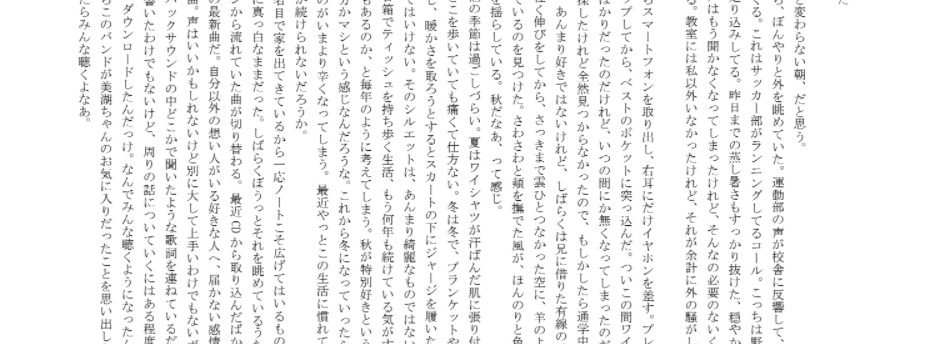 た
と変わらない朝、だと思う。
ら、ぼんやりと外を眺めていた。運動部の声が校舎に反響して、
くる。これはサッカー部がランニングしてるコール。こっちは野
走り込みしてる。昨日までの蒸し暑さもすっかり抜けた、穏やか
はもう聞かなくなってしまったけれど、そんなの必要のないく
る。教室には私以外いなかったけれど、それが余計に外の騒がし
らスマートフォンを取り出し、右耳にだけイヤホンを差す。プレ
プしてから、ベストのポケットに突っ込んだ。ついこの間ワイ
ばかりだったのだけれど、いつの間にか無くなってしまったのだ
探したけれど全然見つからなかったので、もしかしたら通学中
、あんまり好きではないけれど、しばらくは兄に借りた有線の
く伸びをしてから、さっきまで雲ひとつなかった空に、羊のよ
ているのを見つけた。さわさわと頬を撫でた風が、ほんのりと色
を揺らしている。秋だなあ、って感じ。
の季節は過ごしづらい。夏はワイシャツが汗ばんだ肌に張り付
ここを歩いていても痛くて仕方ない。冬は冬で、ブランケットや
し、暖かさを取ろうとするとスカートの下にジャージを履いた
てはいけない。そのシルエットは、あんまり綺麗なものではない
箱でティッシュを持ち歩く生活、もう何年も続けている気がす
もあるのか、と毎年のように考えてしまう。秋が特別好きという
分かマシという感じなんだろうな。これから冬になっていったら
のがいまより辛くなってしまう。最近やっとこの生活に慣れて
か続けられないだろうか。
名目で家を出てきているから一応ノートこそ広げてはいるもの
に真っ白なままだった。しばらくぼうっとそれを眺めているう
ンから流れていた曲が切り替わる。最近CDから取り込んだばか
の最新曲だ。自分以外の想い人がいる好きな人へ、届かない感情
曲。声はいいかもしれないけど別に大して上手いわけでもないボ
バックサウンドの中どこかで聞いたような歌詞を連ねているだ
響いたわけでもないけど、周りの話についていくにはある程度
ダウンロードしたんだっけ。なんでみんな聴くようになったん
らこのバンドが美湖ちゃんのお気に入りだったことを思い出し
たらみんな聴くよなあ。